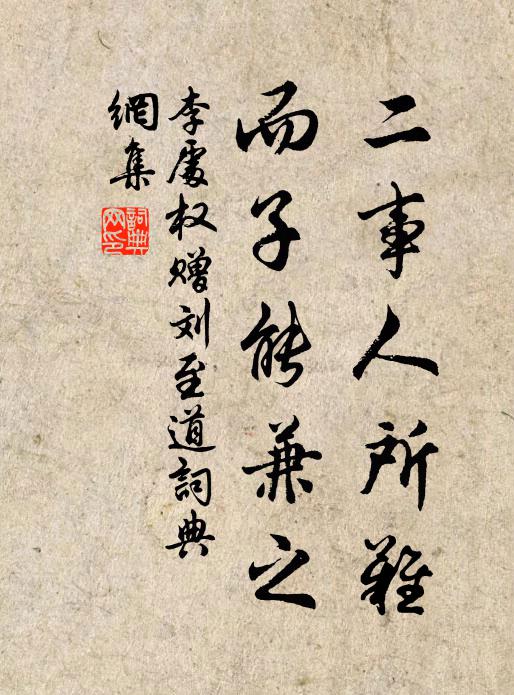 二事人所難
而子能兼之
李處权赠刘至道詞典
網集
詞典
网印